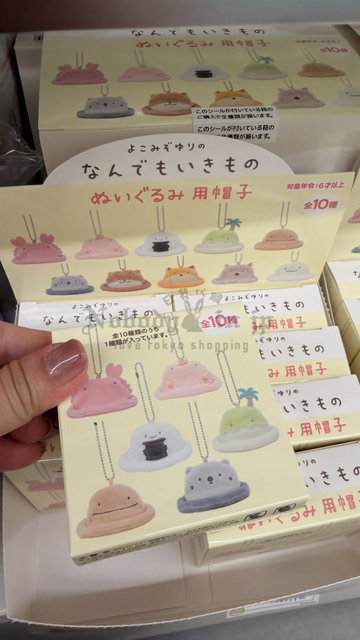 ぬいぐるみ用帽子
全10種
このシールが付いている箱の
ご購入で全種類が揃います。
このシールが付いている箱の
よこみぞゆりの
なんでもいきもの
ぬいぐるみ用帽子
対象年令:6才以上
全10種
よこみぞゆりの
なんでもいきもの
全10種類のうち
1種類が入っています。
全10種
love tokyo shopping
よこみぞゆりの
でもいきもの
るみ用帽子
もいきもの
み用帽子
ゆりの
もいきもの
ぬいぐるみ用帽子